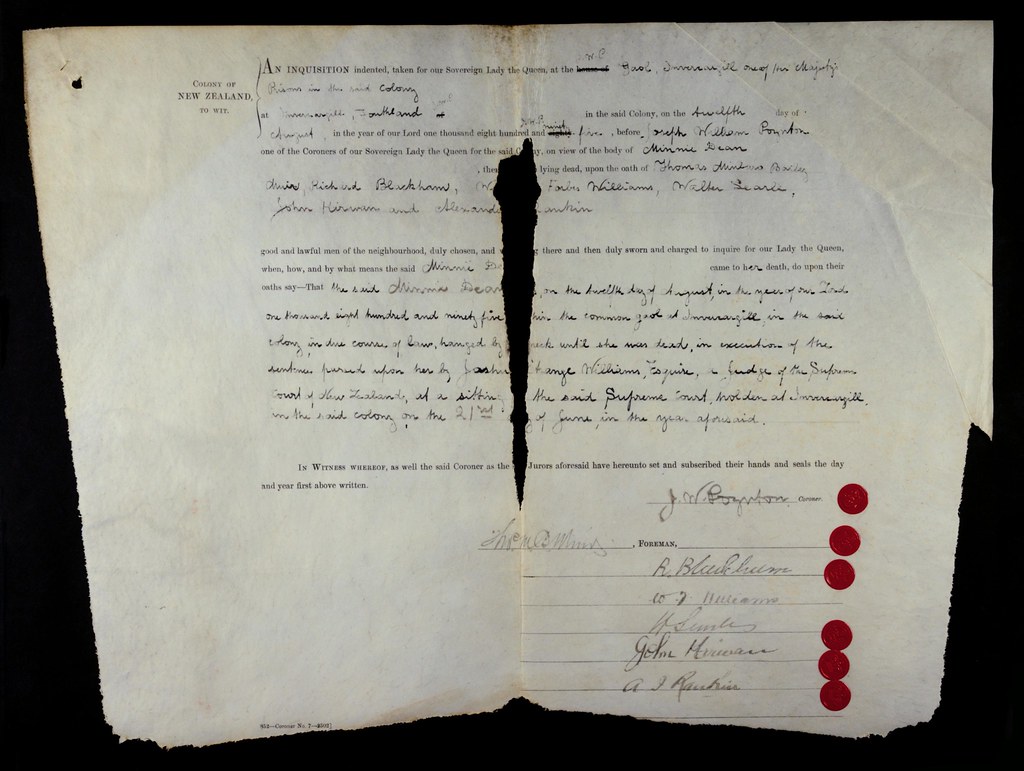 COLONY OF
NEW ZEALAND,
TO WIT.
AN INQUISITION indented, taken for our Sovereign Lady the Queen, at the house of Gaol, Invercargill one of Her Majesty's
Prisons in the said Colony
at Invercargill, Southland in the said Colony, on the twelfth day of
August, in the year of our Lord one thousand eight hundred and ninety five, before Joseph William Poynton
one of the Coroners of our Sovereign Lady the Queen for the said ny, on view of the body of Minnie Dean
, the lying dead, upon the oath of Thomas
Muir, Richard Blackham, Wi Forbes Williams, Walter Searle,
John Kirwan and Alexand ankin
good and lawful men of the neighbourhood, duly chosen, and g there and then duly sworn and charged to inquire for our Lady the Queen,
when, how, and by what means the said Minnie De came to her death, do upon their
oaths say—That the said Minnie Dean, on the twelfth day of August, in the year of our Lord
one thousand eight hundred and ninety five hin the common gaol at Invercargill, in the said
colony, in due course of law, hanged by neck until she was dead, in execution of the
sentence passed upon her by Joshu Strange Williams, Esquire, a Judge of the Supreme
Court of New Zealand, at a sitting the said Supreme Court, holden at Invercargill,
in the said colony on the 21st y of June, in the year aforesaid.
IN WITNESS WHEREOF, as well the said Coroner as the Jurors aforesaid have hereunto set and subscribed their hands and seals the day
and year first above written.
J. W. Poynton, Coroner.
Thos. M. B. Muir, FOREMAN,
R Blackham
W F Williams
W Searle
John Kirwan
A J Rankin